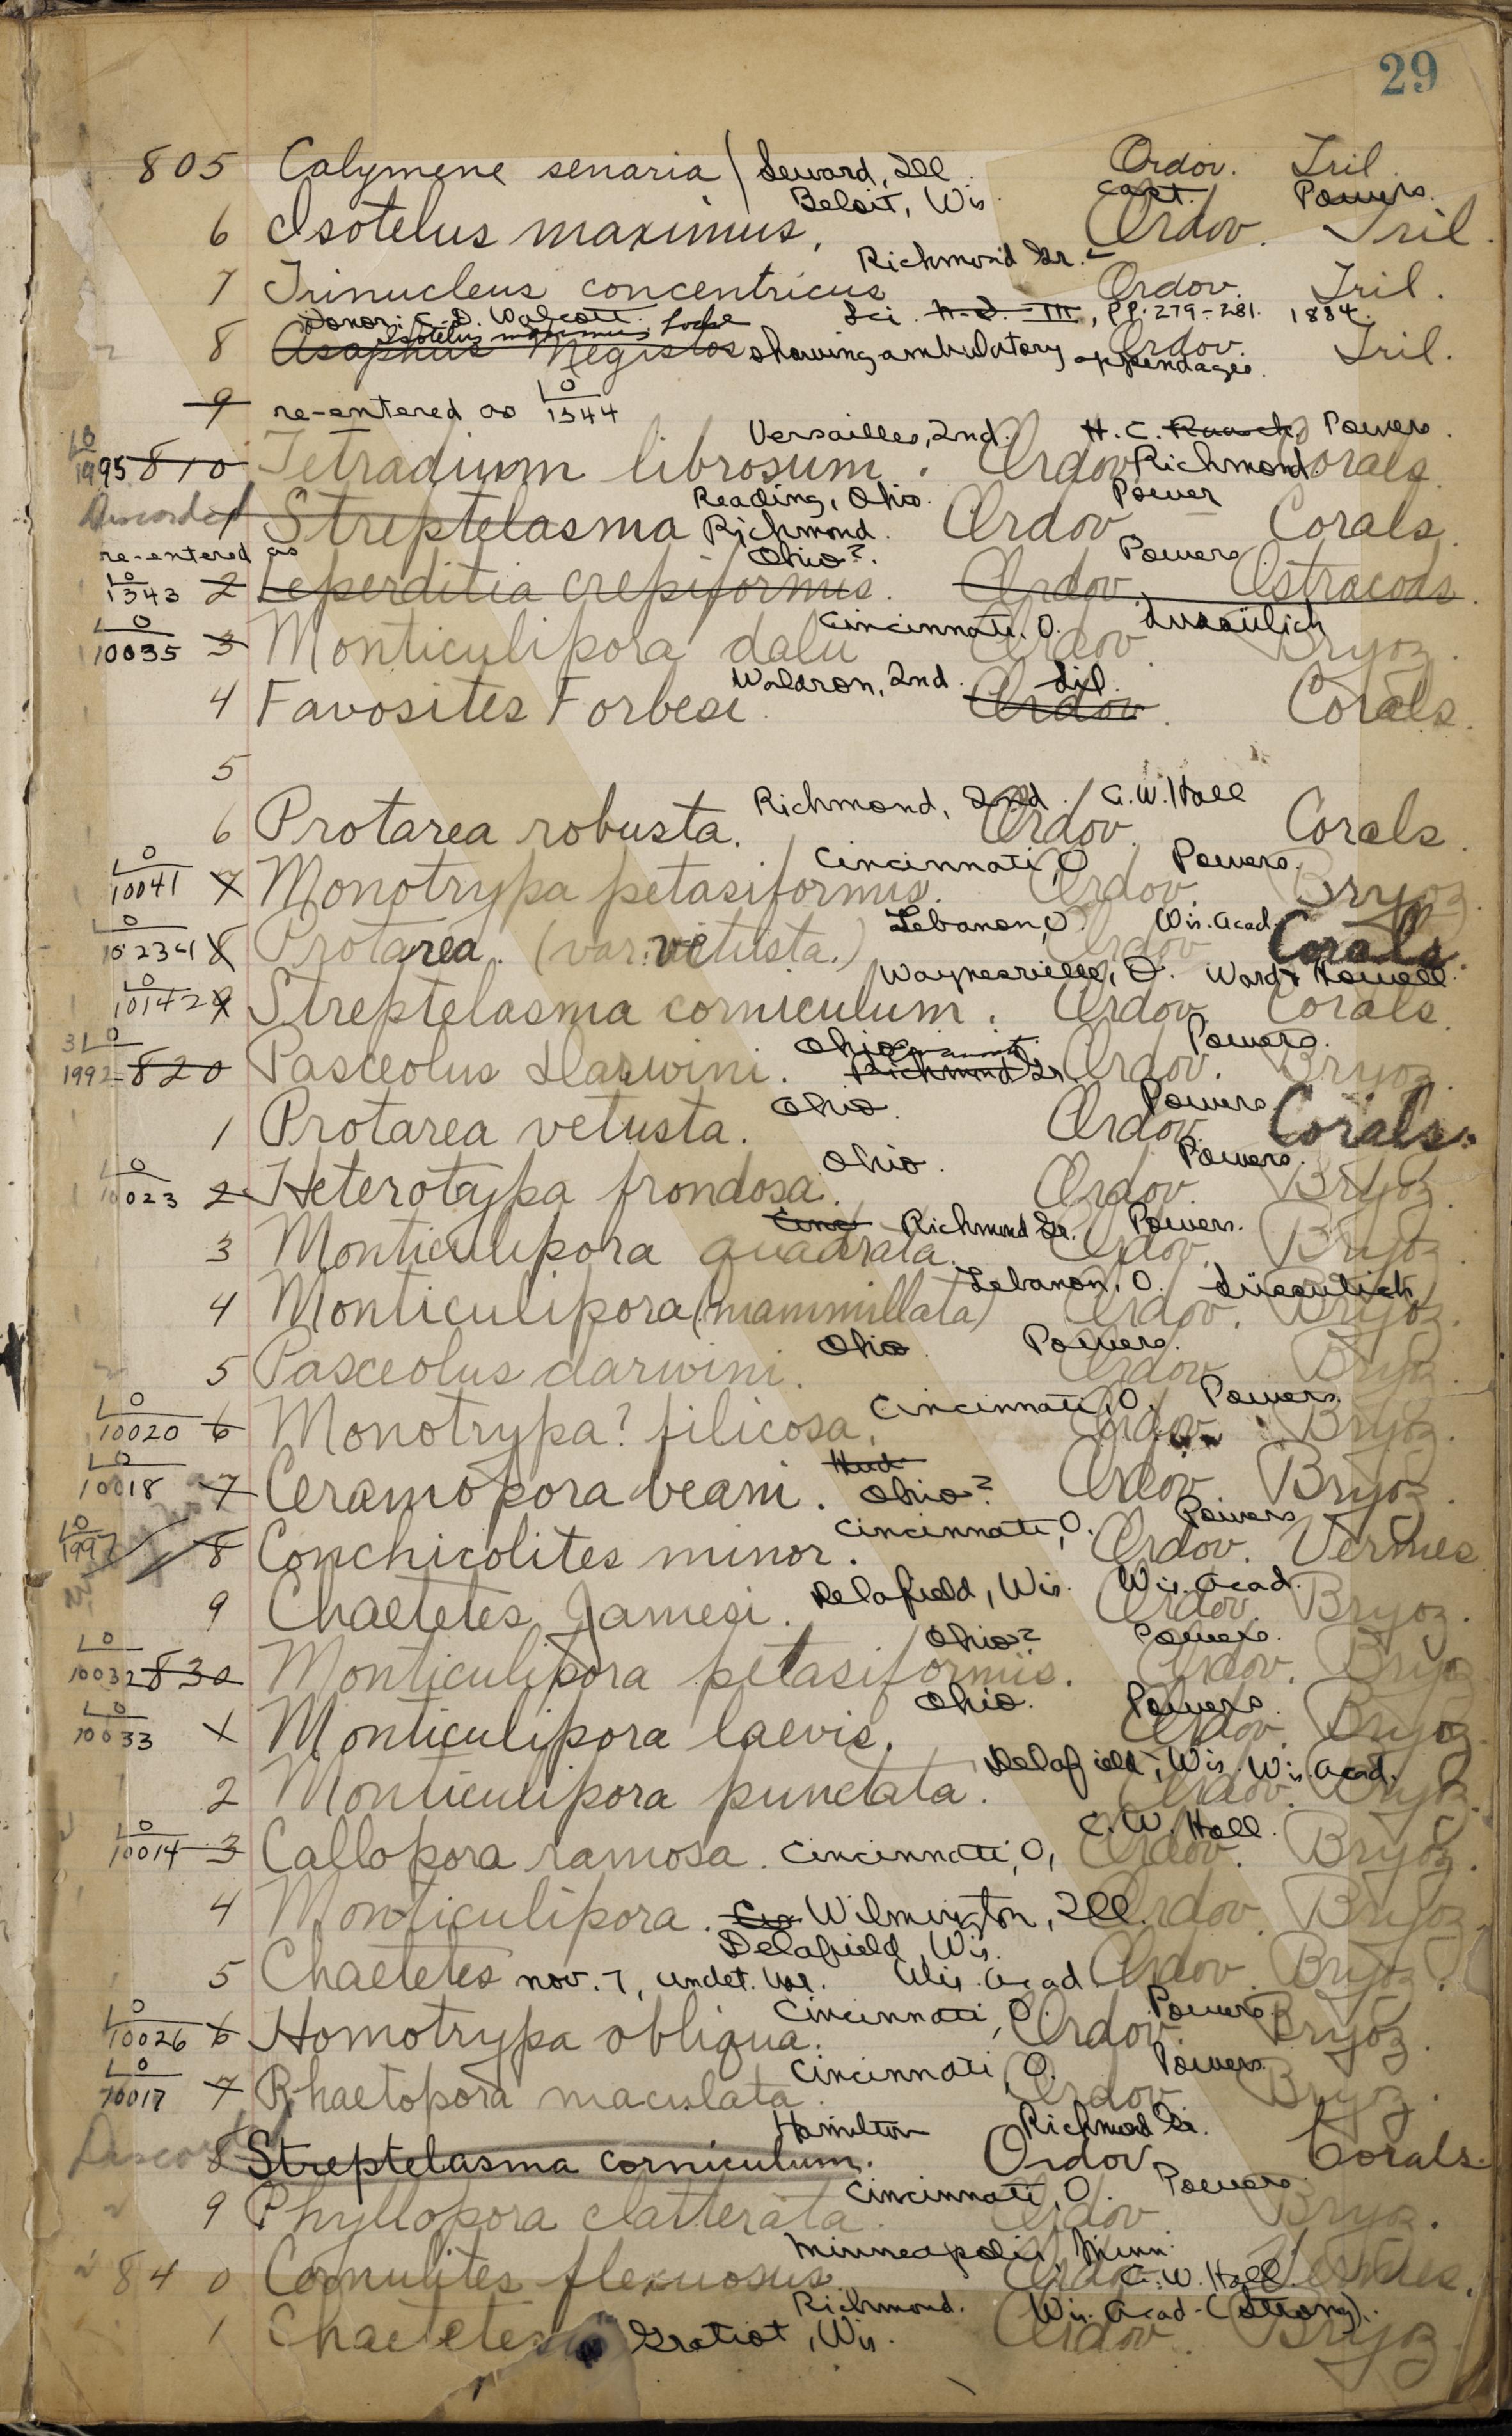 29
805 Calymene senaria / Seward, Ill. Ordov. Tril.
Beloit, Wis. Powers.
6 Isotelus maximus. Ordov. Tril.
Richmond Gr.
7 Trinucleus concentricus Ordov. Tril.
Donor: C. D. Walcott. Sci. N.S. III, pp. 279-281. 1884.
Isotelus maximus, Locke
8 Asaphus Megistos showing ambulatory appendages. Ordov. Tril.
9 re-entered as LO 1344
Versailles, Ind. H. C. Powers.
LO 1995 810 Tetradium librosum. Ordov. Richmond. Corals.
Reading, Ohio. Power
Discarded 1 Streptelasma Richmond. Ordov. Corals.
re-entered as Ohio?. Powers
LO 1343 2 Leperditia crepiformis. Ordov. Ostracods.
Cincinnati. O.
LO 10035 3 Monticulipora Ordov. Bryoz.
Waldron, Ind. Sil.
4 Favosites Forbesi. Ordov. Corals.
5
Richmond, Ind. C. W. Hall
6 Protarea robusta. Ordov. Corals.
Cincinnati, O Powers.
LO 10041 7 Monotrypa petasiformis. Ordov. Bryoz.
Lebanon, O. Wis. Acad.
LO 8 Protarea. (var. vetusta.) Ordov. Corals.
Waynesville, O. Ward & Howell.
LO 10142 9 Streptelasma corniculum. Ordov. Corals.
Ohio Powers.
LO 1992 820 Pasceolus Darwini. Richmond Gr. Ordov. Bryoz.
Ohio. Powers
1 Protarea vetusta. Ordov. Corals.
Ohio. Powers.
LO 10023 2 Heterotypa frondosa. Ordov. Bryoz.
Cinc Richmond Gr. Powers.
3 Monticulipora quadrata. Ordov. Bryoz.
Lebanon, O.
4 Monticulipora (mammillata) Ordov. Bryoz.
Ohio. Powers.
5 Pasceolus darwini. Ordov. Bryoz.
Cincinnati, O. Powers.
LO 10020 6 Monotrypa? filicosa. Ordov. Bryoz.
LO 10018 7 Ceramopora beani. Ohio? Ordov. Bryoz.
Cincinnati, O. Powers
LO 1997 8 Conchicolites minor. Ordov. Vermes
Delafield, Wis. Wis. Acad.
9 Chaetetes Jamesi. Ordov. Bryoz.
Ohio? Powers.
LO 10032 830 Monticulipora petasiformis. Ordov. Bryoz
Ohio. Powers.
LO 10033 1 Monticulipora laevis. Ordov. Bryoz.
Delafield, Wis. Wis. Acad.
2 Monticulipora punctata. Ordov. Bryoz.
C. W. Hall.
LO 10014 3 Callopora ramosa. Cincinnati, O, Ordov. Bryoz.
4 Monticulipora. Cin Wilmington, Ill. Ordov. Bryoz.
Delafield, Wis.
5 Chaetetes nov. 7, undet. var. Wis. Acad Ordov. Bryoz.
Cincinnati, O. Powers.
LO 10026 6 Homotrypa obliqua. Ordov. Bryoz.
Cincinnati, O. Powers.
LO 10017 7 Rhaetopora maculata. Ordov. Bryoz.
Hamilton Richmond Gr.
8 Streptelasma corniculum. Ordov. Corals.
Cincinnati, O. Powers.
9 Phyllopora clatterata. Ordov. Bryoz.
Minneapolis, Minn.
840 Cornulites flexuosus. Ordov. C. W. Hall. Vermes.
Richmond. Wis. Acad-(Strong).
1 Chaetetes Gratiot, Wis. Ordov. Bryoz.